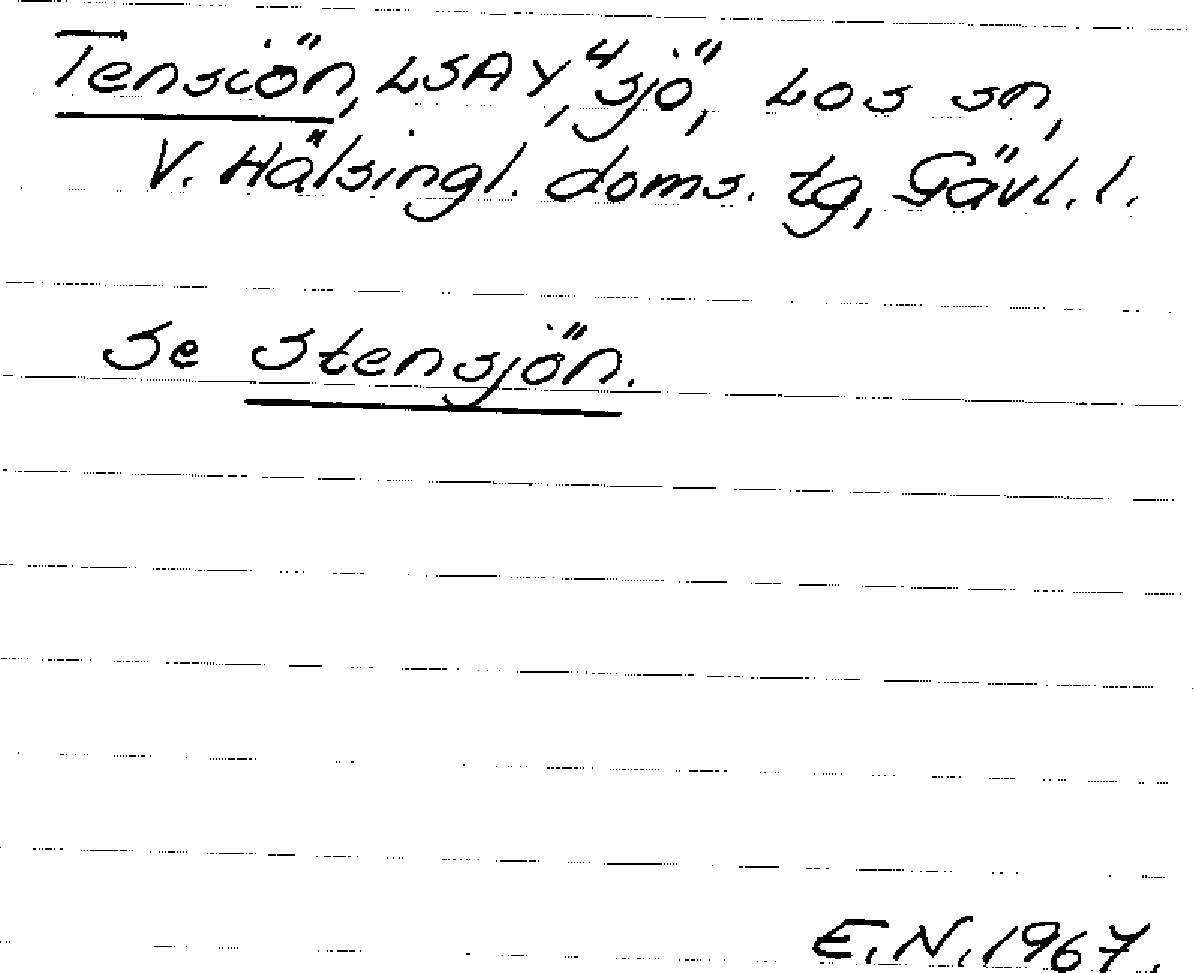 Tensiön, LSA Y, "sjö", Los sn,
V. Hälsingl. doms. tg, Gävl. l.
Se Stensjön.
E.N. 1967.